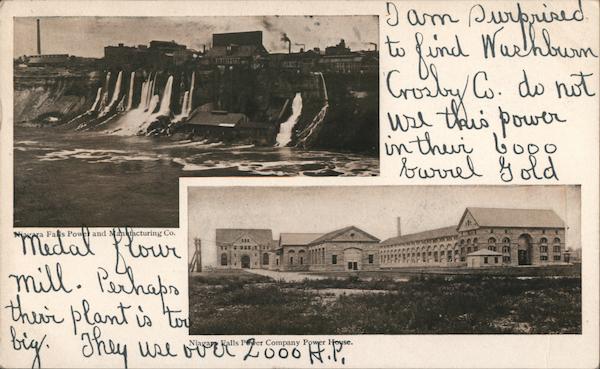 I am Surprised
to find Washburn
Crosby Co. do not
use this power
in their 6000
barrel Gold
Niagara Falls Power and Manufacturing Co.
Medal flour
Mill. Perhaps
their plant is too
big. They use over 2000 H.P.
Niagara Falls Power Company Power House.